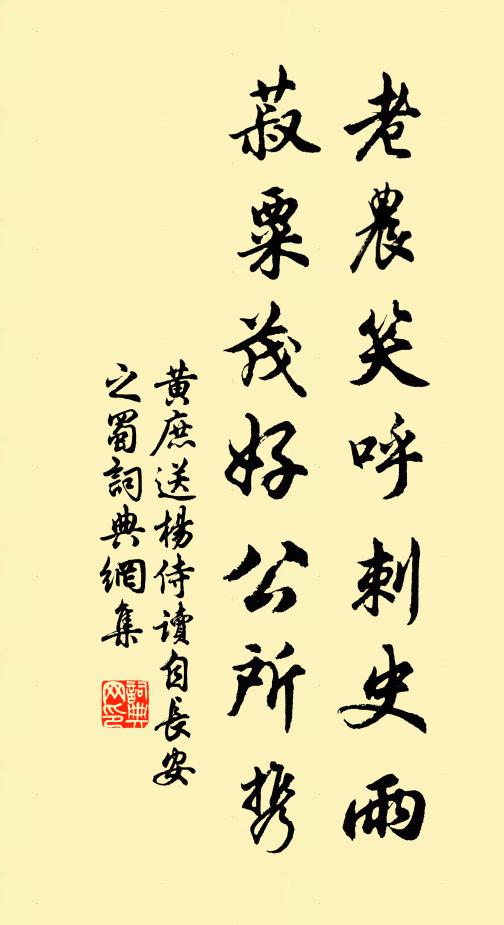 老農笑呼刺史雨
菽粟茂好公所携
黃庶送楊侍讀自長安
之蜀詞典網集
詞典
网印